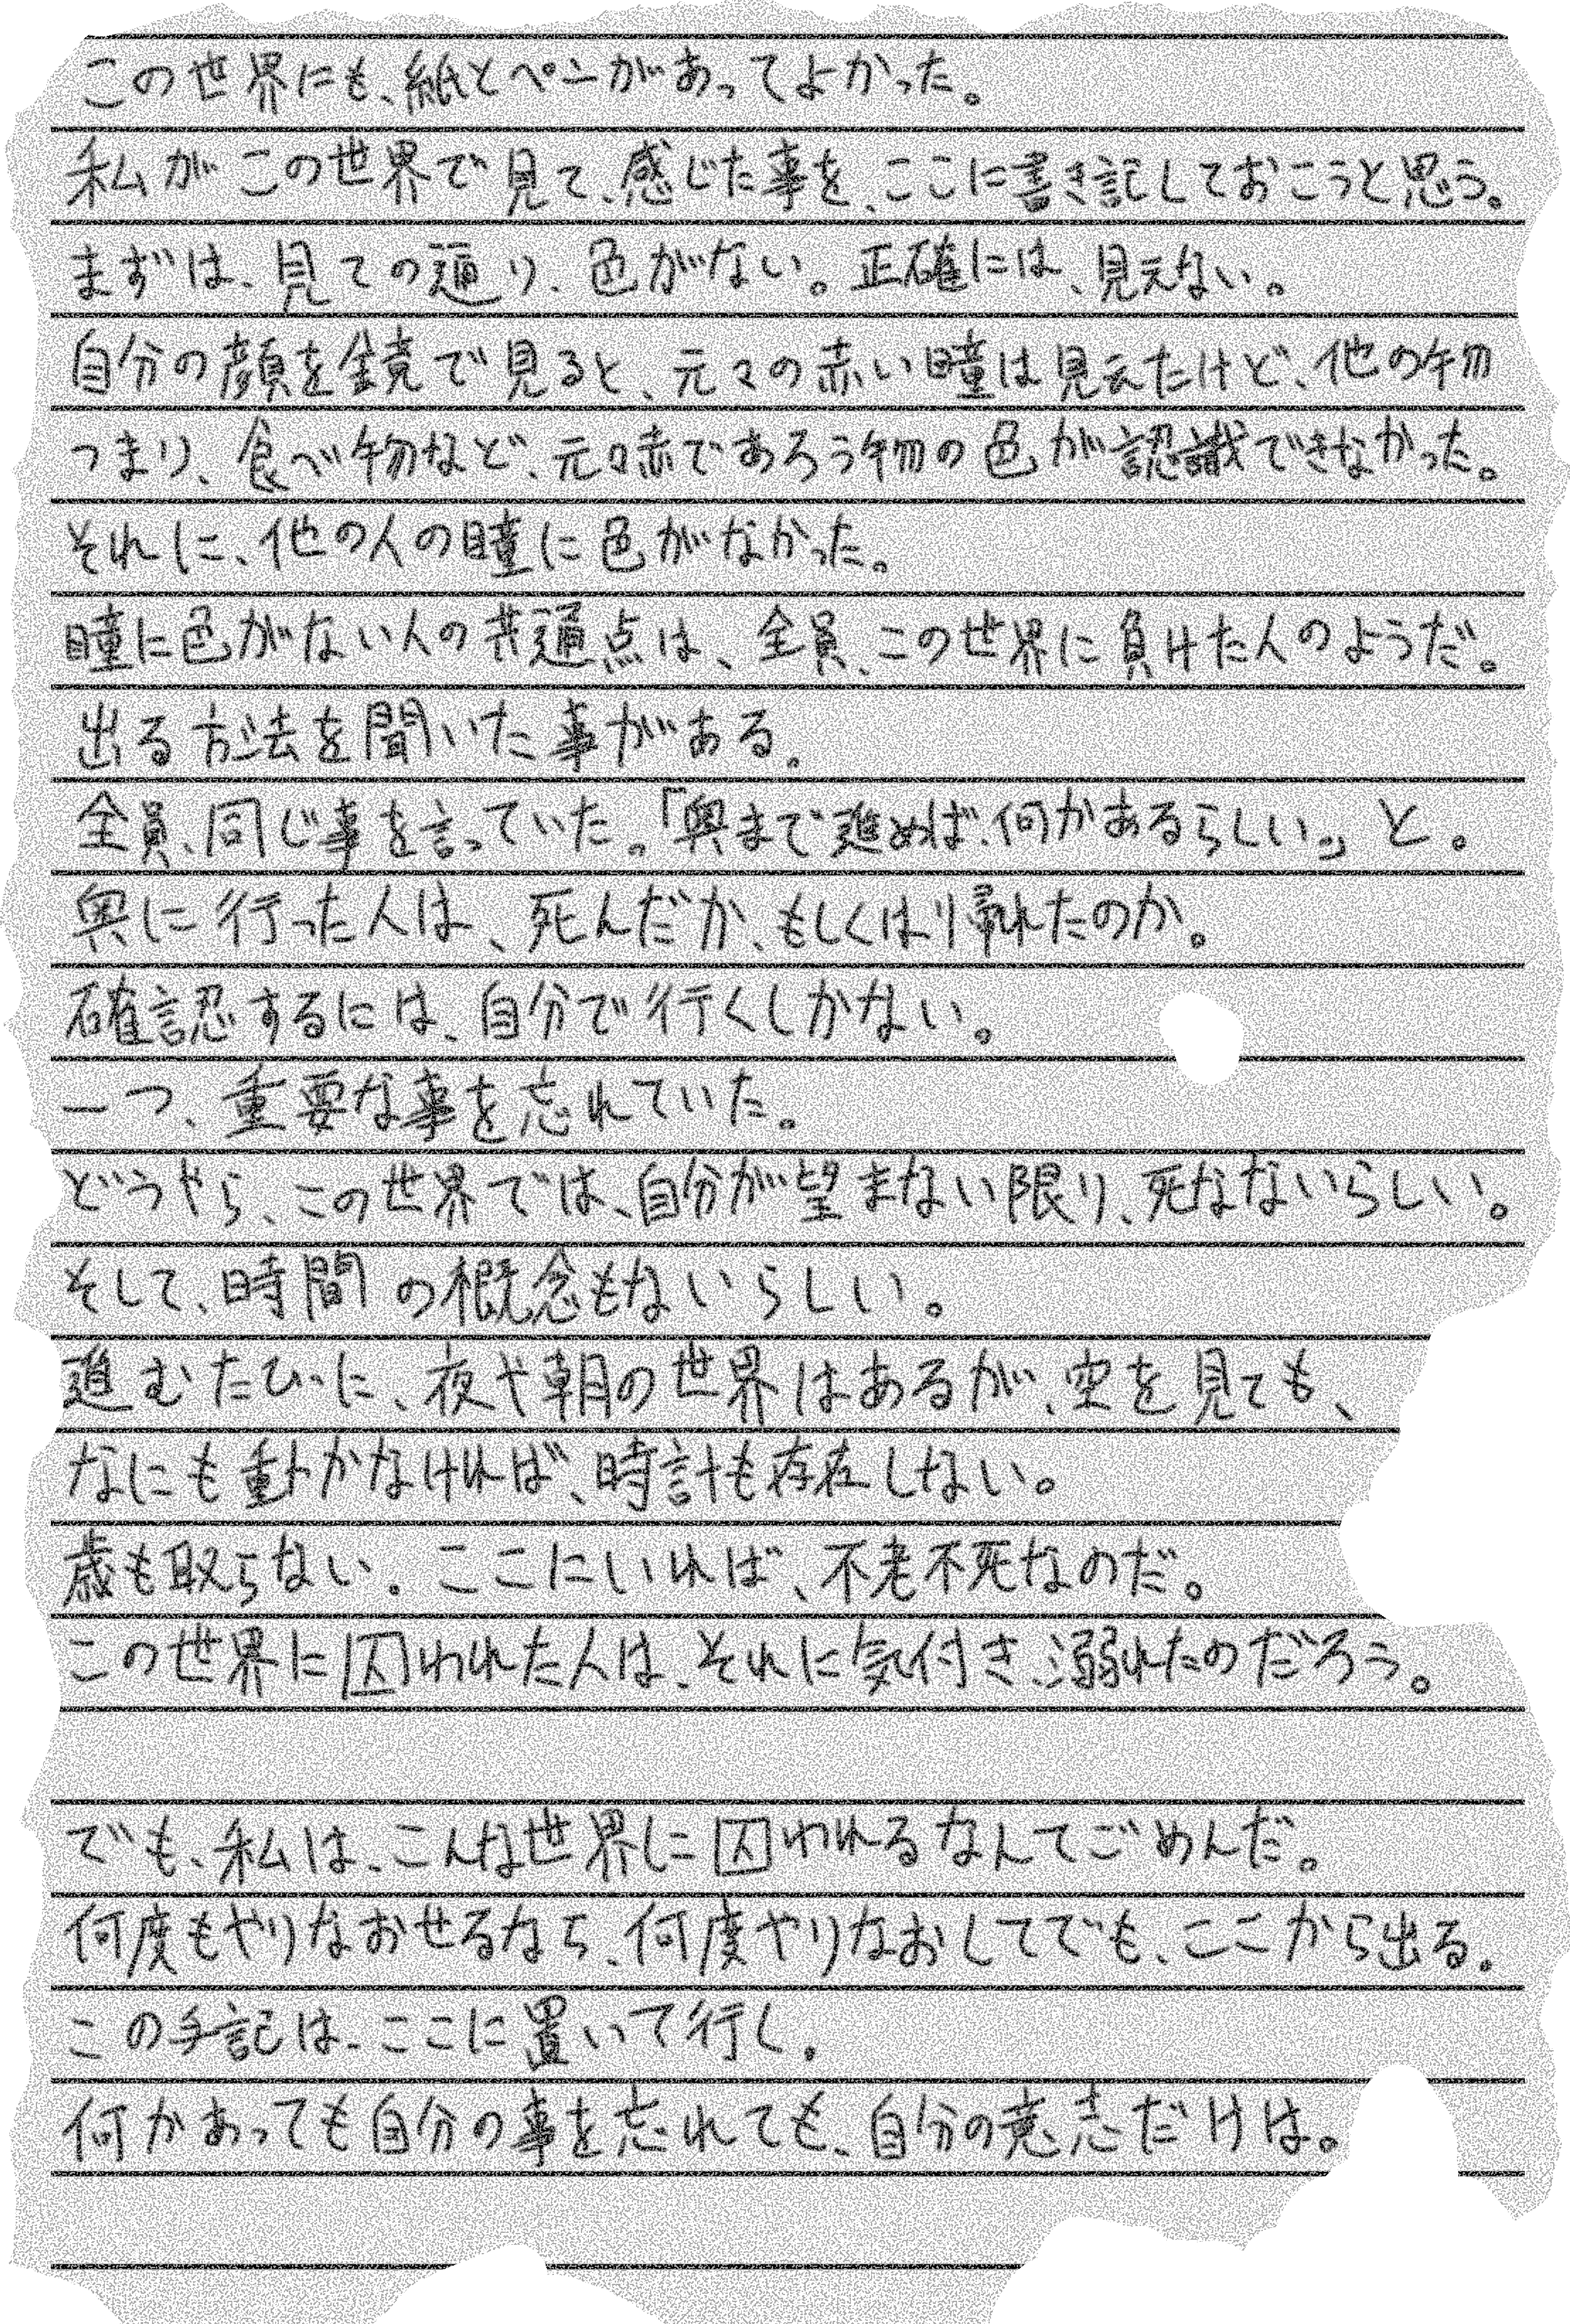 この世界にも、紙とペンがあってよかった。
私がこの世界で見て、感じた事を、ここに書き記しておこうと思う。
まずは、見ての通り、色がない。正確には、見えない。
自分の顔を鏡で見ると、元々の赤い瞳は見えたけど、他の物
つまり、食べ物など、元々赤であろう物の色が認識できなかった。
それに、他の人の瞳に色がなかった。
瞳に色がない人の共通点は、全員、この世界に負けた人のようだ。
出る方法を聞いた事がある。
全員、同じ事を言っていた。「奥まで進めば、何かあるらしい。」と。
奥に行った人は、死んだか、もしくは帰れたのか。
確認するには、自分で行くしかない。
一つ、重要な事を忘れていた。
どうやら、この世界では、自分が望まない限り、死なないらしい。
そして、時間の概念もないらしい。
進むたびに、夜や朝の世界はあるが、空を見ても、
なにも動かなければ、時計も存在しない。
歳も取らない。ここにいれば、不老不死なのだ。
この世界に囚われた人は、それに気付き、溺れたのだろう。
でも、私は、こんな世界に囚われるなんてごめんだ。
何度もやりなおせるなら、何度やりなおしてでも、ここから出る。
この手記は、ここに置いて行く。
何があっても自分の事を忘れても、自分の意志だけは。